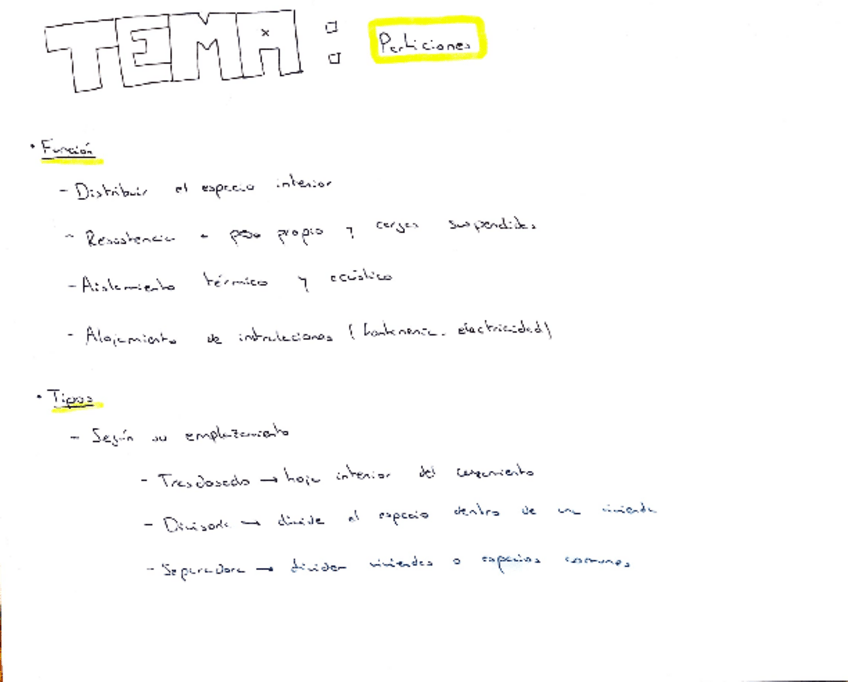 TEMA: Particiones
• Función
- Distribuir el espacio interior
- Resistencia a peso propio y cargas suspendidas
- Aislamiento térmico y acústico
- Alojamiento de instalaciones (fontanería, electricidad)
• Tipos
- Según su emplazamiento
- Trasdosado → hoja interior del cerramiento
- Divisoria → divide el espacio dentro de una vivienda
- Separadora → dividen viviendas o espacios comunes